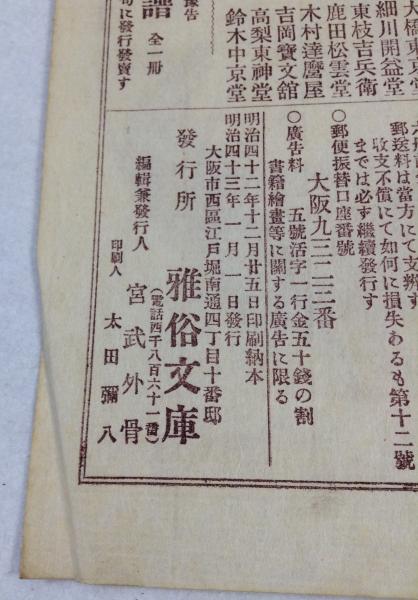 大橋東京堂
細川開益堂
東枝吉兵衛
鹿田松雲堂
木村達磨屋
吉岡寶文舘
高梨東神堂
鈴木中京堂
豫告
譜 全一冊
旬に發行發賣す
郵送料は當方にて支辨す
收支不償にて如何に損失あるも第十二號
までは必ず繼續發行す
○郵便振替口座番號
大阪九三二二番
○廣告料 五號活字一行金五十錢の割
書籍繪畫等に關する廣告に限る
明治四十二年十二月廿五日印刷納本
明治四十三年一月一日發行
大阪市西區江戸堀南通四丁目十番邸
發行所 雅俗文庫
(電話西千八百六十一番)
編輯兼發行人 宮武外骨
印刷人 太田彌八